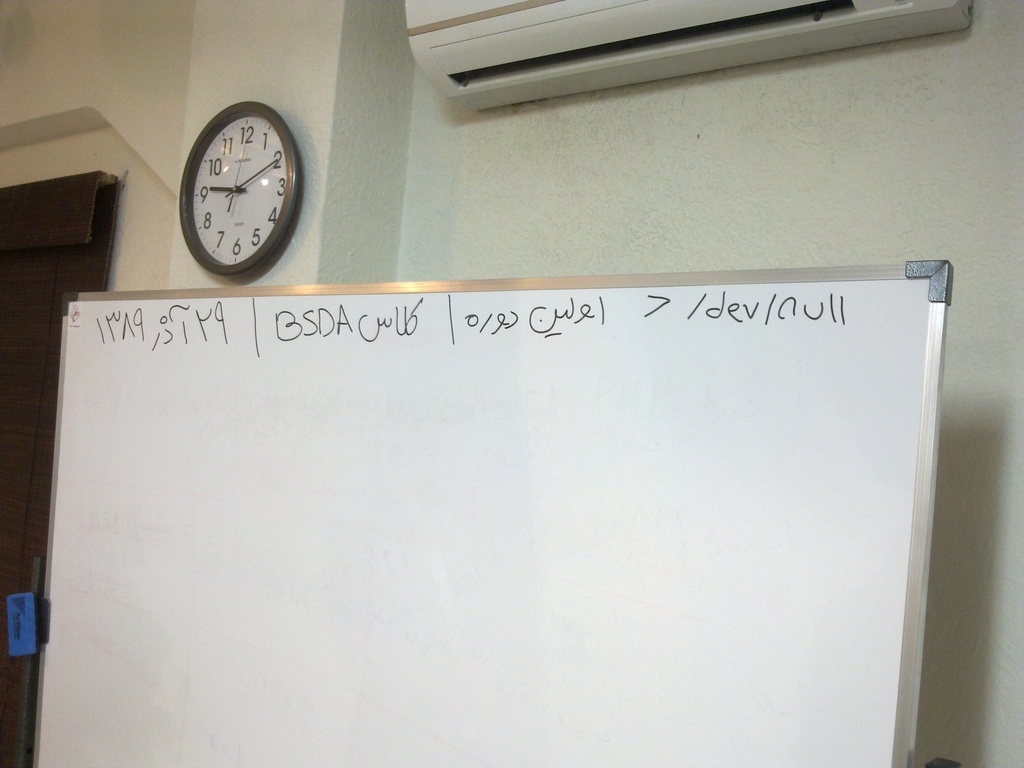 12
1
2
3
4
5
6
7
8
9
10
11
۲۹ آذر ۱۳۸۹ | کلاس BSDA | اولین دوره > /dev/null